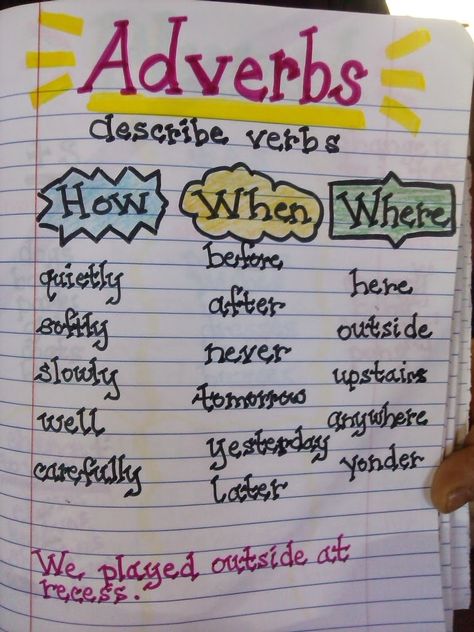 Adverbs
describe verbs
How
When
Where
quietly
softly
slowly
well
carefully
before
after
never
tomorrow
yesterday
later
here
outside
upstairs
anywhere
yonder
We played outside at
recess.